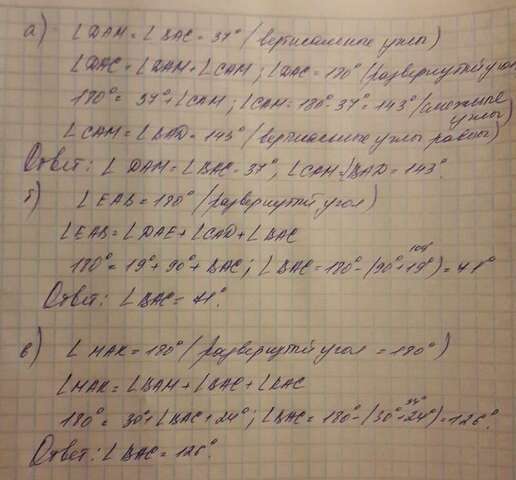 а) ∠DAM = ∠BAC = 37° (вертикальные углы)
∠DAC = ∠DAM + ∠CAM ; ∠DAC = 180° (развернутый угол
180° = 37° + ∠CAM ; ∠CAM = 180 - 37° = 143° (смежные углы)
∠CAM = ∠BAD = 143° (вертикальные углы равны)
Ответ: ∠DAM = ∠BAC = 37°, ∠CAM = ∠BAD = 143°.
б) ∠EAB = 180° (развернутый угол)
∠EAB = ∠DAE + ∠CAD + ∠BAC
109°
180° = 19° + 90° + BAC ; ∠BAC = 180° - (90° + 19°) = 71°
Ответ: ∠BAC = 71°.
в) ∠MAK = 180° (развернутый угол = 180°)
∠MAK = ∠BAM + ∠BAC + ∠KAC
54°
180° = 30° + ∠BAC + 24° ; ∠BAC = 180° - (30° + 24°) = 126°.
Ответ: ∠BAC = 126°.